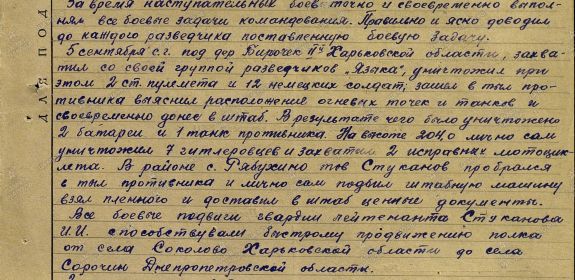 За время наступательных боев точно и своевременно выпол-
нял все боевые задачи командования. Правильно и ясно доводил
до каждого разведчика поставленную боевую задачу.
5 сентября с.г. под дер Бирочек Харьковской области, захва-
тил со своей группой разведчиков "Языка", уничтожил при
этом 2 ст. пулемета и 12 немецких солдат; зашел в тыл про-
тивника выяснил расположение огневых точек и танков и
своевременно донес в штаб. В результате чего было уничтожено
2 батареи и 1 танк противника. На высоте 204,0 лично сам
уничтожил 7 гитлеровцев и захватил 2 исправных мотоцик-
лета. В районе с. Рябухино тов Стуканов пробрался
в тыл противника и лично сам подбил штабную машину
взял пленного и доставил в штаб ценные документы.
Все боевые подвиги гвардии лейтенанта Стуканова
И.И. способствовали быстрому продвижению полка
от села Соколово Харьковской области до села
Сорочин Днепропетровской области.
ДЛЯ ПОД